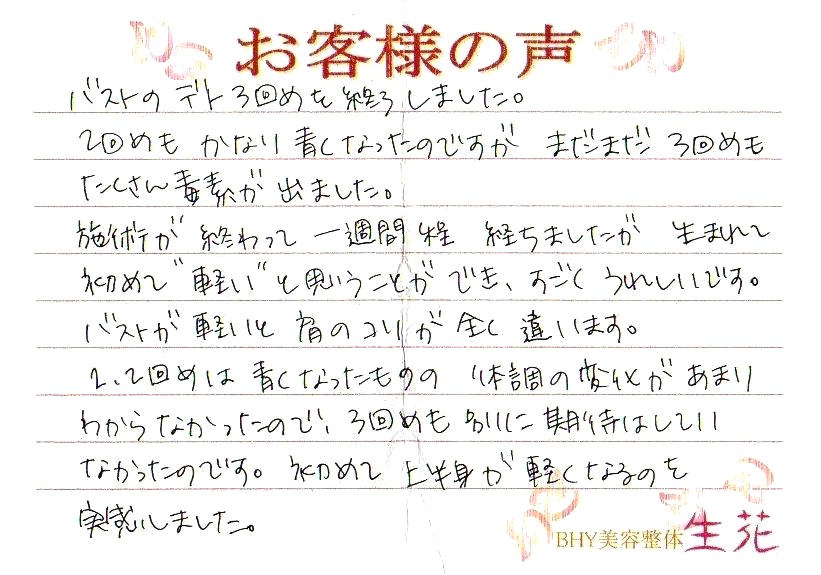 お客様の声
バストのデト3回めを終了しました。
2回めも かなり青くなったのですが まだまだ 3回めも
たくさん毒素が出ました。
施術が 終わって 一週間程 経ちましたが 生まれて
初めて"軽い"と思うことができ、すごく うれしいです。
バストが軽いと 肩のコリが全く違います。
1、2回めは 青くなったものの 体調の変化があまり
わからなかったので、3回めも 別に期待はしてい
なかったのです。初めて 上半身が 軽くなるのを
実感しました。
BHY美容整体 生花